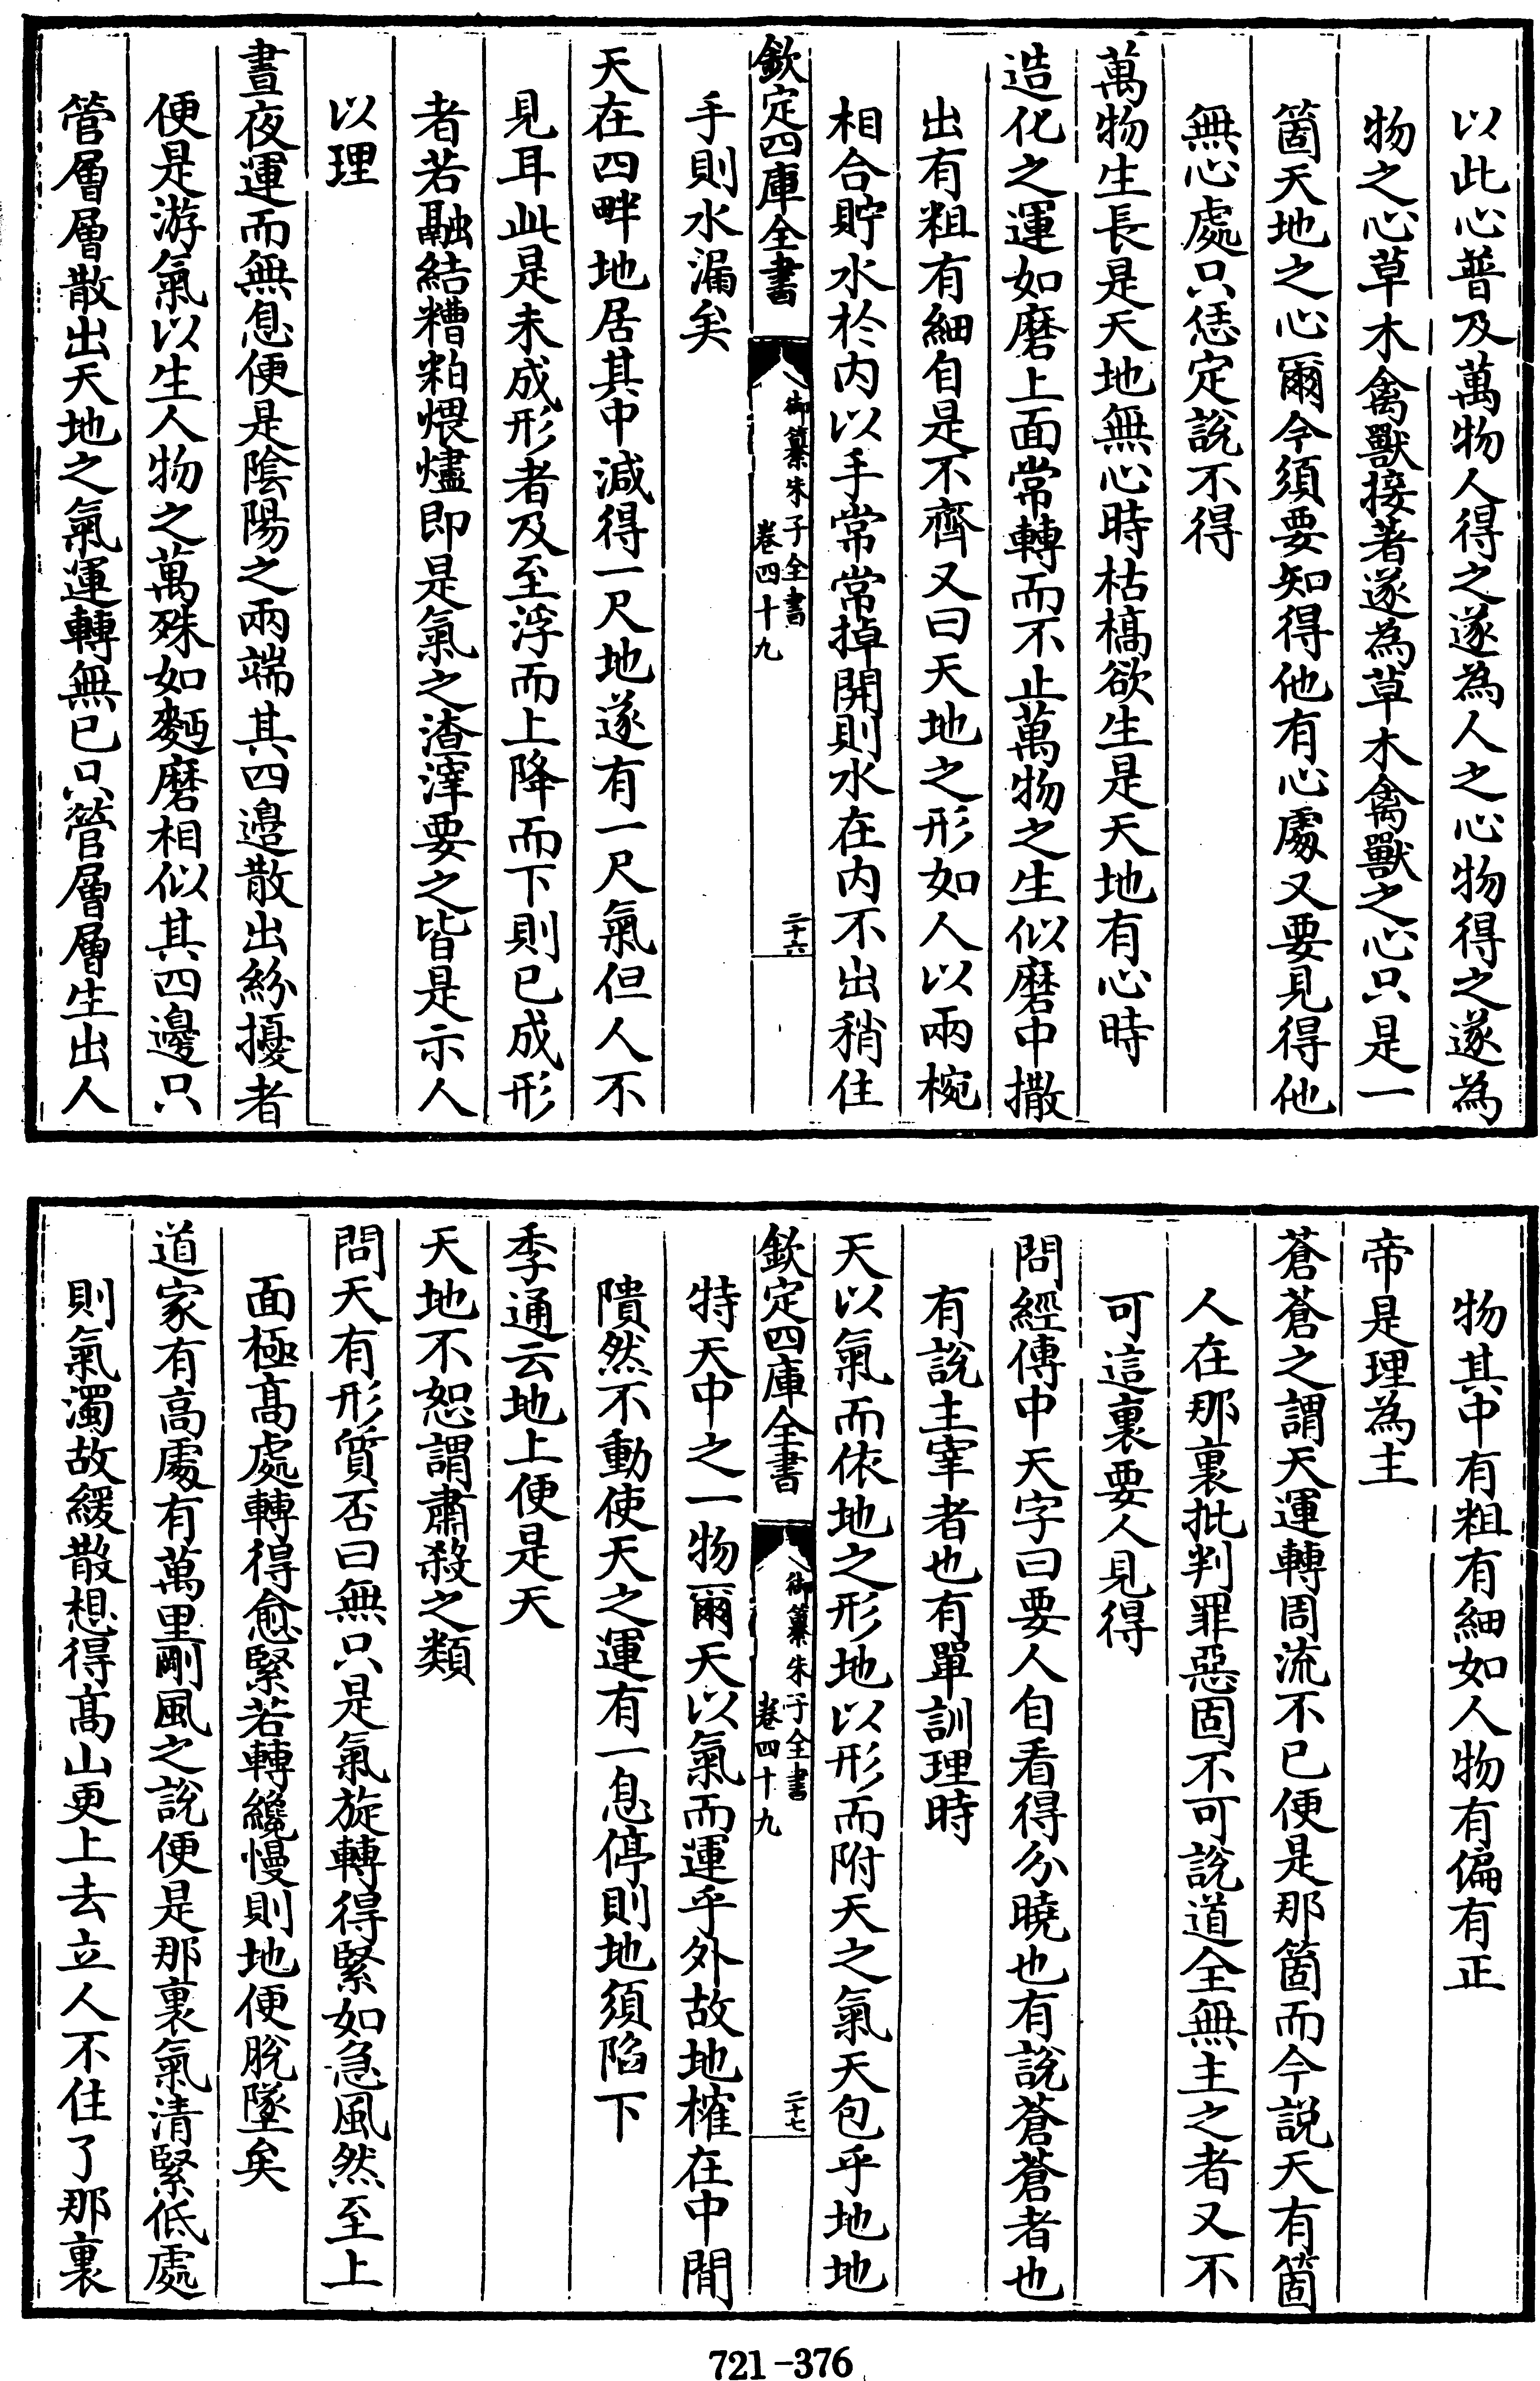 以此心普及萬物人得之遂為人之心物得之遂為
物之心草木禽獸接著遂為草木禽獸之心只是一
箇天地之心爾今須要知得他有心處又要見得他
無心處只恁定說不得
萬物生長是天地無心時枯槁欲生是天地有心時
造化之運如磨上面常轉而不止萬物之生似磨中撒
出有粗有細自是不齊又曰天地之形如人以兩椀
相合貯水於内以手常常掉開則水在内不出稍住
手則水漏矣
欽定四庫全書
御纂朱子全書
卷四十九
二十六
天在四畔地居其中減得一尺地遂有一尺氣但人不
見耳此是未成形者及至浮而上降而下則已成形
者若融結糟粕煨燼即是氣之渣滓要之皆是示人
以理
晝夜運而無息便是陰陽之兩端其四邉散出紛擾者
便是游氣以生人物之萬殊如麪磨相似其四邊只
管層層散出天地之氣運轉無已只管層層生出人
物其中有粗有細如人物有偏有正
帝是理為主
蒼蒼之謂天運轉周流不已便是那箇而今説天有箇
人在那裏批判罪惡固不可說道全無主之者又不
可這裏要人見得
問經傳中天字曰要人自看得分曉也有說蒼蒼者也
有說主宰者也有單訓理時
天以氣而依地之形地以形而附天之氣天包乎地地
欽定四庫全書
御纂朱子全書
卷四十九
二十七
特天中之一物爾天以氣而運乎外故地榷在中間
隤然不動使天之運有一息停則地須陷下
季通云地上便是天
天地不恕謂肅殺之類
問天有形質否曰無只是氣旋轉得緊如急風然至上
面極高處轉得愈緊若轉纔慢則地便脫墜矣
道家有高處有萬里剛風之說便是那裏氣清緊低處
則氣濁故緩散想得高山更上去立人不住了那裏
721-376